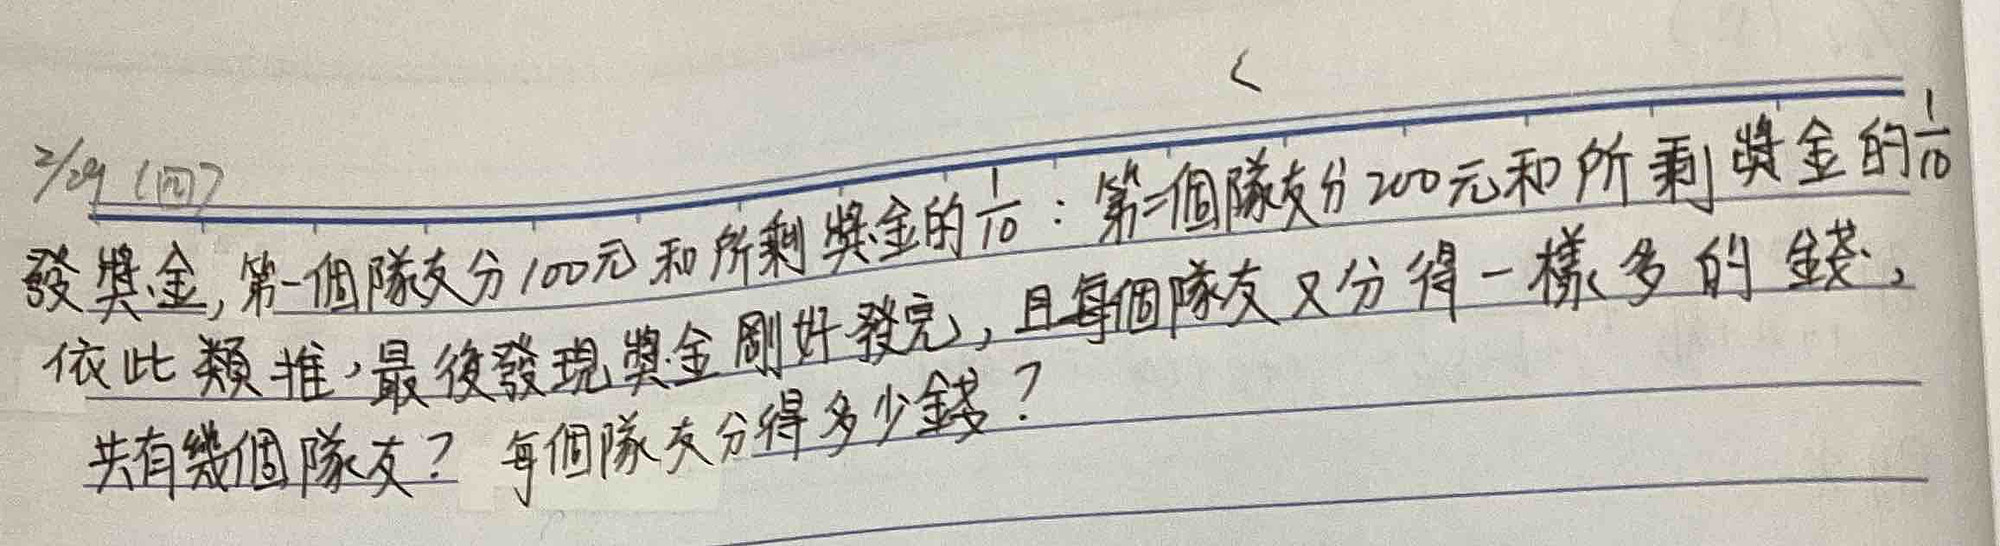 2/29 (四)
發獎金,第一個隊友分100元和所剩獎金的1/10:第二個隊友分200元和所剩獎金的1/10
依此類推,最後發現獎金剛好發完,且每個隊友又分得一樣多的錢,
共有幾個隊友? 每個隊友分得多少錢?